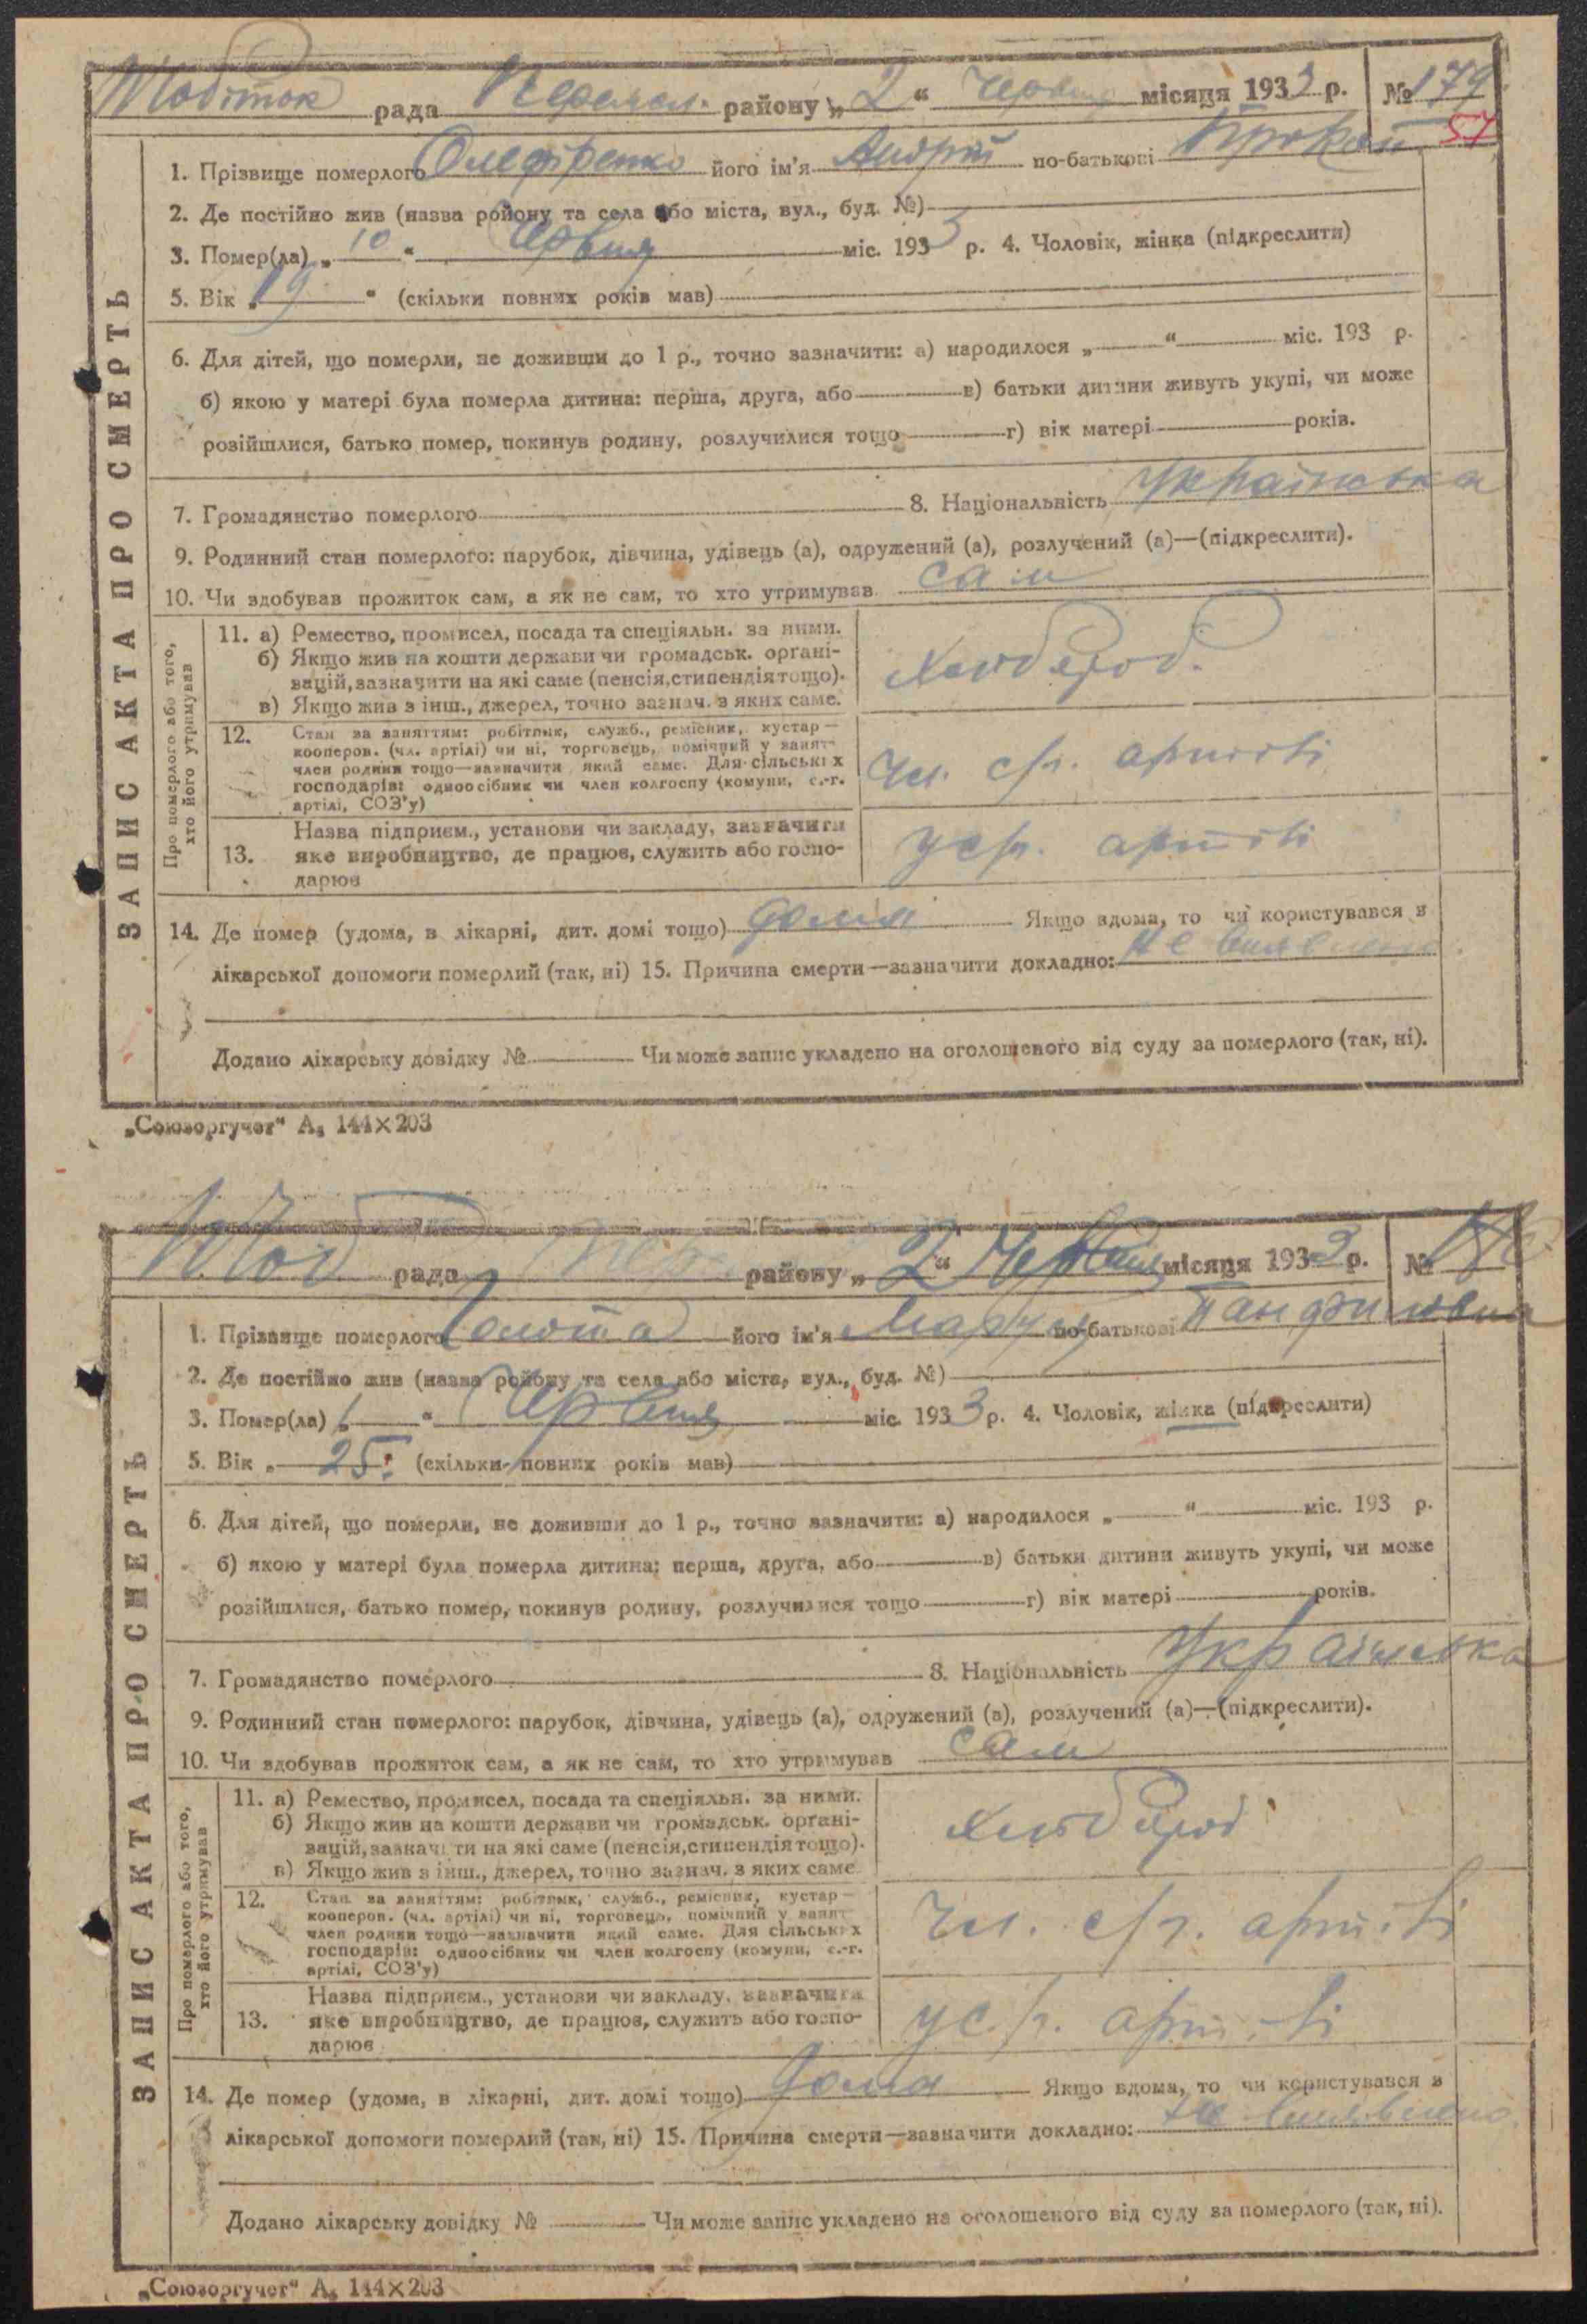 рада Переясл. району „2“ Червня місяця 1933 р. № 179
57
1. Прізвище померлого Олефіренко його ім'я Андрій по-батькові Прокоп
2. Де постійно жив (назва ройону та села або міста, вул., буд. №)
3. Помер(ла) „10“ Червня міс. 1933 р. 4. Чоловік, жінка (підкреслити)
5. Вік „19“ (скільки повних років мав)
6. Для дітей, що померли, не доживши до 1 р., точно зазначити: а) народилося „ “ міс. 193 р.
б) якою у матері була померла дитина: перша, друга, або в) батьки дитини живуть укупі, чи може
розійшлися, батько помер, покинув родину, розлучилися тощо г) вік матері років.
7. Громадянство померлого 8. Національність Українська
9. Родинний стан померлого: парубок, дівчина, удівець (а), одружений (а), розлучений (а)—(підкреслити).
10. Чи здобував прожиток сам, а як не сам, то хто утримував сам
ЗАПИС АКТА ПРО СМЕРТЬ
Про померлого або того, хто його утримував
11. а) Ремество, промисел, посада та спеціяльн. за ними.
б) Якщо жив на кошти держави чи громадськ. органі-
зацій, зазначити на які саме (пенсія, стипендія тощо).
в) Якщо жив з інш., джерел, точно зазнач. з яких саме.
Хлібороб.
12. Стан за заняттям: робітник, служб., ремісник, кустар—
кооперов. (чл. артілі) чи ні, торговець, помічний у занят-
член родини тощо—зазначити який саме. Для сільських
господарів: одноосібник чи член колгоспу (комуни, с.-г.
артілі, СОЗ'у)
Чл. с/г. артілі
13. Назва підприєм., установи чи закладу, зазначити
яке виробництво, де працює, служить або госпо-
дарює
у с/г. артілі
14. Де помер (удома, в лікарні, дит. домі тощо) дома Якщо вдома, то чи користувався з
лікарської допомоги померлий (так, ні) 15. Причина смерти—зазначити докладно: не виявлено
Додано лікарську довідку № Чи може запис укладено на оголошеного від суду за померлого (так, ні).
„Союзоргучет“ А₅ 144×203
рада району „2“ Червня місяця 1933 р. №
1. Прізвище померлого Голота його ім'я по-батькові Панфиловна
2. Де постійно жив (назва ройону та села або міста, вул., буд. №)
3. Помер(ла) „1“ Червня міс. 1933 р. 4. Чоловік, жінка (підкреслити)
5. Вік „25“ (скільки повних років мав)
6. Для дітей, що померли, не доживши до 1 р., точно зазначити: а) народилося „ “ міс. 193 р.
б) якою у матері була померла дитина: перша, друга, або в) батьки дитини живуть укупі, чи може
розійшлися, батько помер, покинув родину, розлучилися тощо г) вік матері років.
7. Громадянство померлого 8. Національність Українська
9. Родинний стан померлого: парубок, дівчина, удівець (а), одружений (а), розлучений (а)—(підкреслити).
10. Чи здобував прожиток сам, а як не сам, то хто утримував сам
ЗАПИС АКТА ПРО СМЕРТЬ
Про померлого або того, хто його утримував
11. а) Ремество, промисел, посада та спеціяльн. за ними.
б) Якщо жив на кошти держави чи громадськ. органі-
зацій, зазначити на які саме (пенсія, стипендія тощо).
в) Якщо жив з інш., джерел, точно зазнач. з яких саме.
Хлібороб
12. Стан за заняттям: робітник, служб., ремісник, кустар—
кооперов. (чл. артілі) чи ні, торговець, помічний у занят-
член родини тощо—зазначити який саме. Для сільських
господарів: одноосібник чи член колгоспу (комуни, с.-г.
артілі, СОЗ'у)
Чл. с/г. артілі
13. Назва підприєм., установи чи закладу, зазначити
яке виробництво, де працює, служить або госпо-
дарює
у с/г. артілі
14. Де помер (удома, в лікарні, дит. домі тощо) дома Якщо вдома, то чи користувався з
лікарської допомоги померлий (так, ні) 15. Причина смерти—зазначити докладно: не виявлено
Додано лікарську довідку № Чи може запис укладено на оголошеного від суду за померлого (так, ні).
„Союзоргучет“ А₅ 144×203